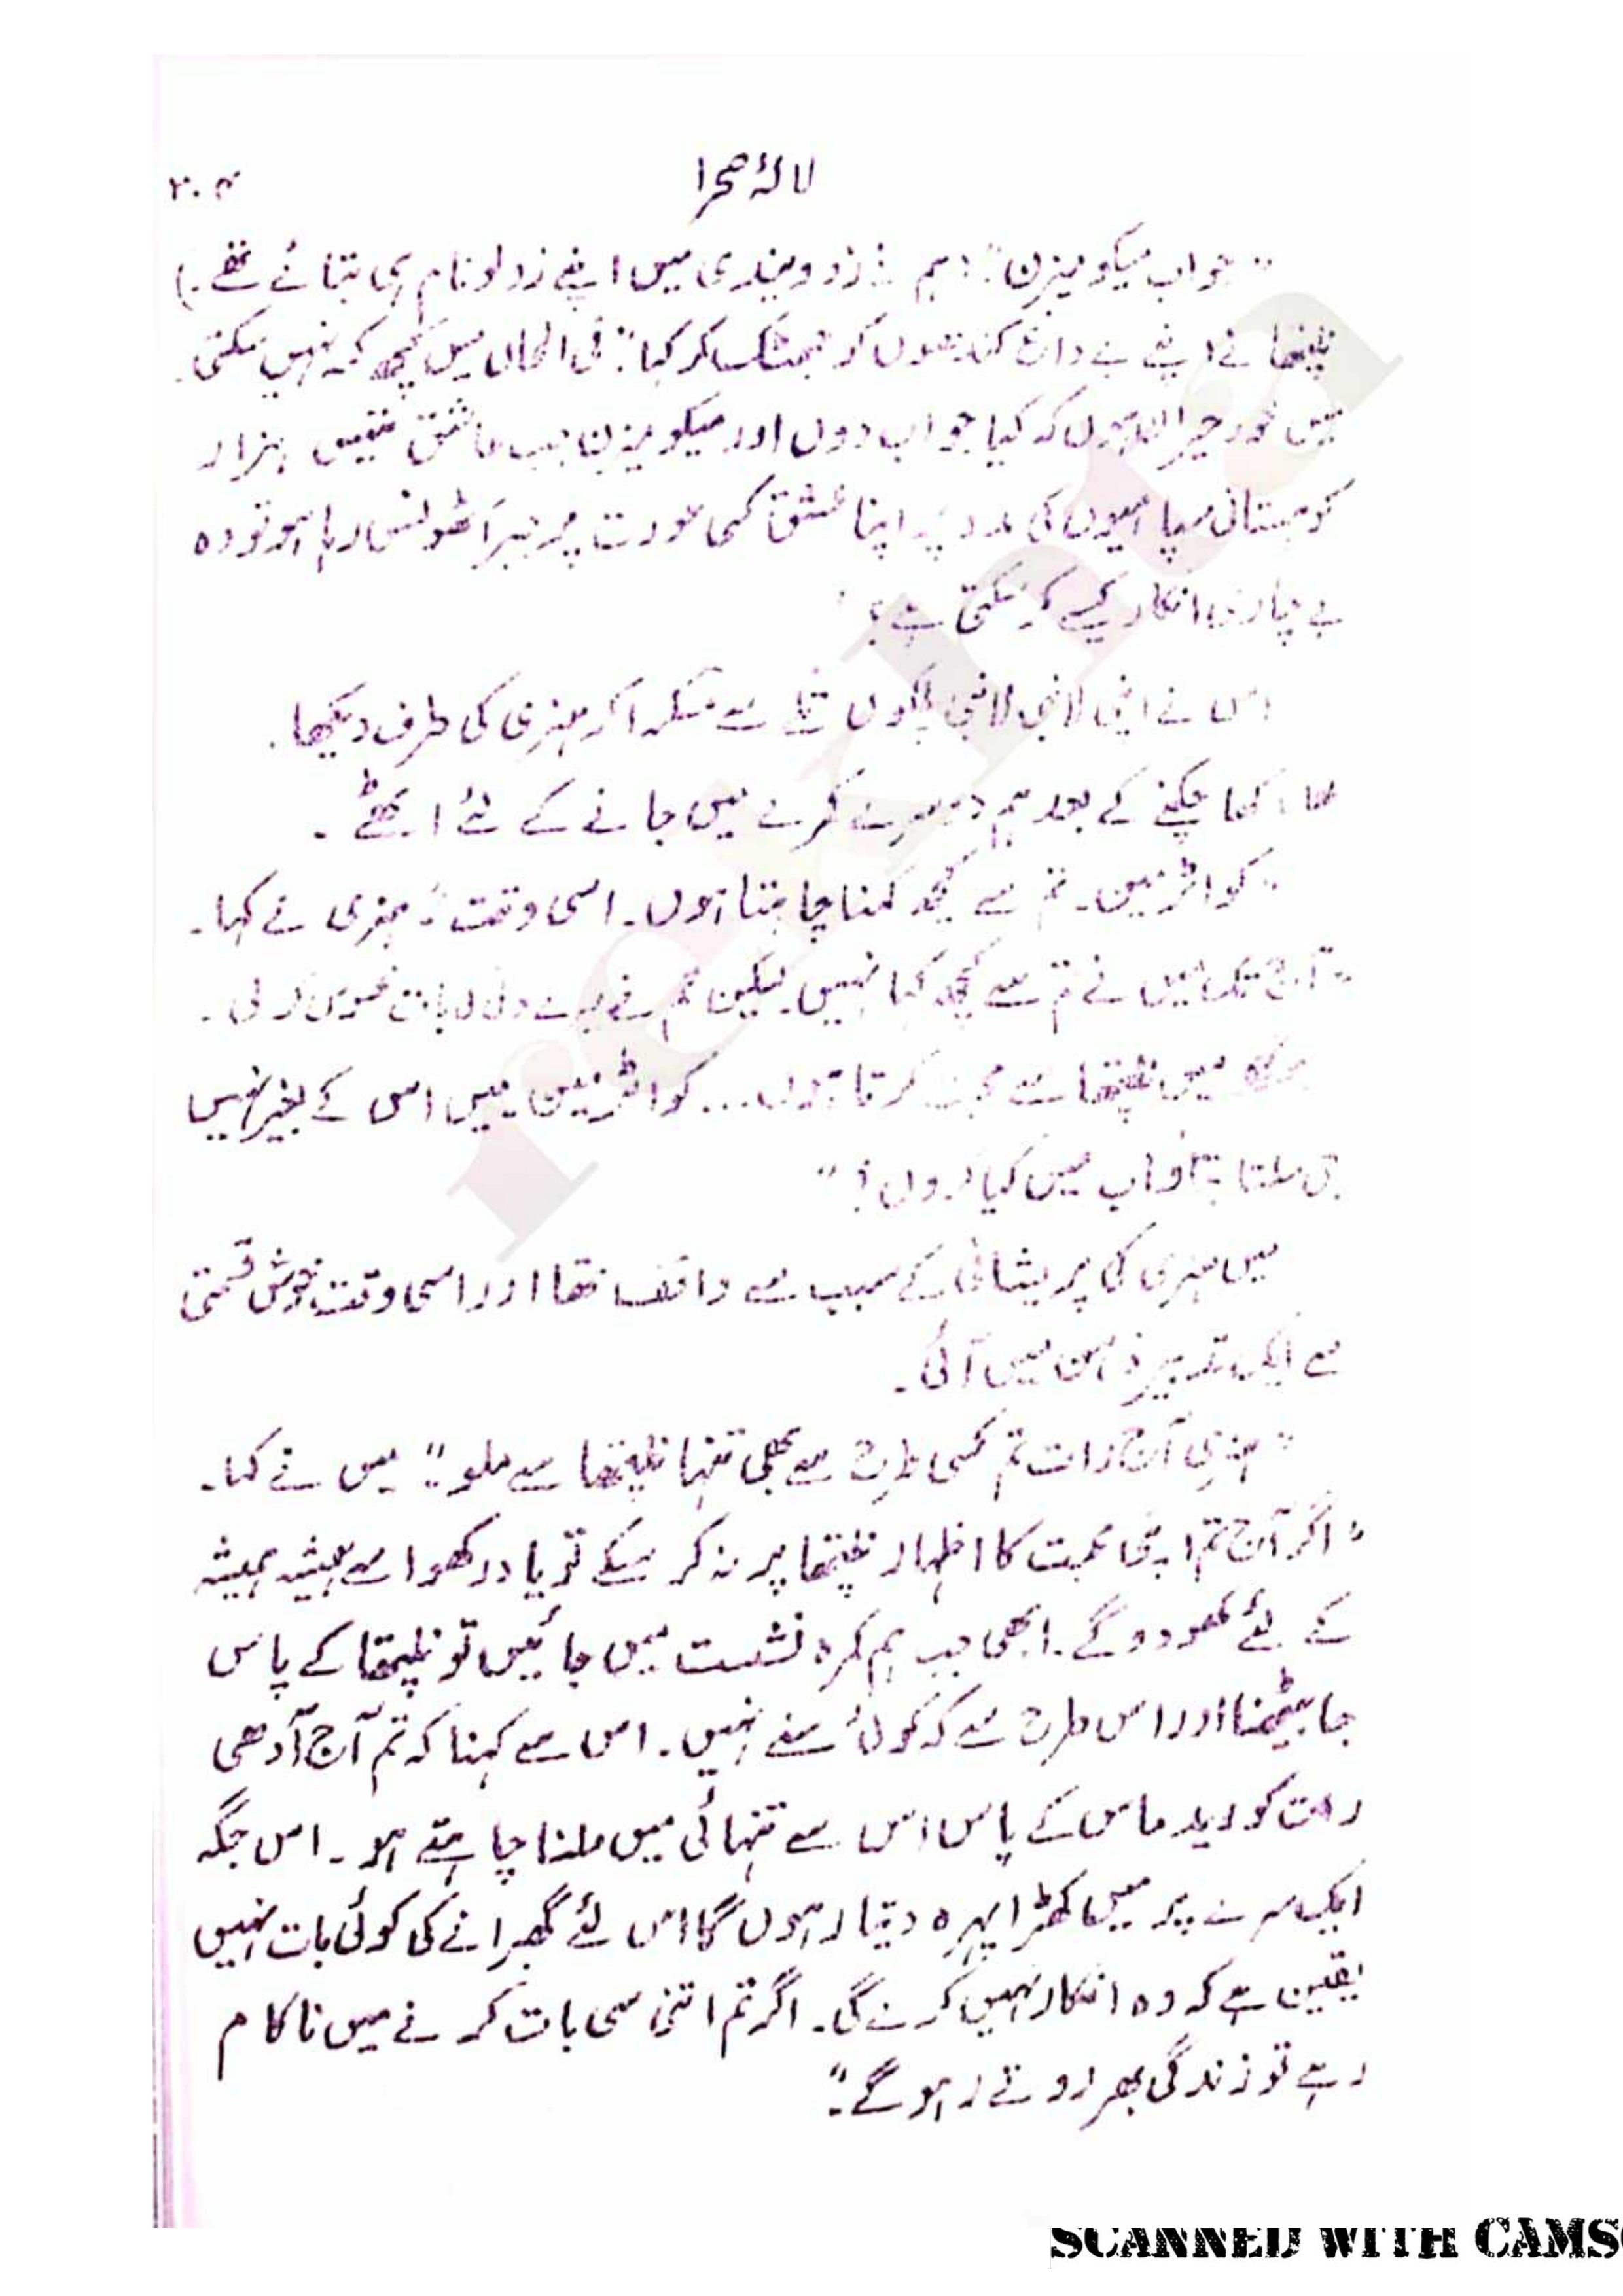 لالۂ صحرا
۳۰۴
"جواب میکو میزن": ہم نے زردویندی میں اپنے زولو نام ہی بتائے تھے۔)
نلپتھا نے اپنے بے داغ کندھوں کو جھٹک کر کہا: "فی الحال میں کچھ کہہ نہیں سکتی۔
میں خود حیران ہوں کہ کیا جواب دوں اور میکو میزن جب عاشق تیس ہزار
کوہستانی سپاہیوں کی مدد پہ اپنا عشق کسی عورت پر جبراً ٹھونس رہا ہو تو وہ
بے چاری انکار کیسے کر سکتی ہے؟
اس نے اپنی لانبی لانبی پلکوں تلے سے مسکرا کر ہنری کی طرف دیکھا۔
کھا چکنے کے بعد ہم دوسرے کمرے میں جانے کے لئے اٹھے۔
"کواٹرمین۔ تم سے کچھ کہنا چاہتا ہوں۔ اسی وقت": ہنری نے کہا۔
"آج تک میں نے تم سے کچھ کہا نہیں لیکن تم نے میرے دل کی بات محسوس کر لی۔
میں نلپتھا سے محبت کرتا ہوں... کواٹرمین میں اس کے بغیر نہیں
جی سکتا بتاؤ اب میں کیا کروں؟"
میں ہنری کی پریشانی کے سبب سے واقف تھا اور اسی وقت خوش قسمتی
سے ایک تدبیر ذہن میں آئی۔
"ہنری آج رات تم کسی طرح سے بھی تنہا نلپتھا سے ملو" میں نے کہا۔
"اگر آج تم اپنی محبت کا اظہار نلپتھا پر نہ کر سکے تو یاد رکھو اسے ہمیشہ ہمیشہ
کے لئے کھو دو گے۔ ابھی جب ہم کمرہ نشست میں جائیں تو نلپتھا کے پاس
جا بیٹھنا اور اس طرح سے کہ کوئی سنے نہیں۔ اس سے کہنا کہ تم آج آدھی
رات کو ریدماس کے پاس اس سے تنہائی میں ملنا چاہتے ہو۔ اس جگہ
ایک سرے پر میں کھڑا پہرہ دیتا رہوں گا اس لئے گھبرانے کی کوئی بات نہیں
یقین ہے کہ وہ انکار نہیں کرے گی۔ اگر تم اتنی سی بات کرنے میں ناکام
رہے تو زندگی بھر روتے رہو گے۔"
SCANNED WITH CAMS